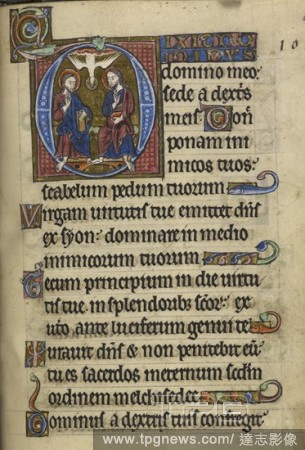 10
Dixit do
minus
domino meo:
sede a dextris
meis. Don
ponam ini
micos tuos:
scabelum pedum tuorum.
Virgam virtutis tue emittet dñs
ex syon: dominare in medio
inimicorum tuorum.
Tecum principium in die virtu
tis tue. in splendoribȝ scõr: ex
utero ante luciferum genui te.
Iuravit dñs & non penitebit eũ:
tu es sacerdos ineternum scdm
ordinem melchisedec.
Dominus a dextris tuis confregit
www.tpgnews.com / 達志影像